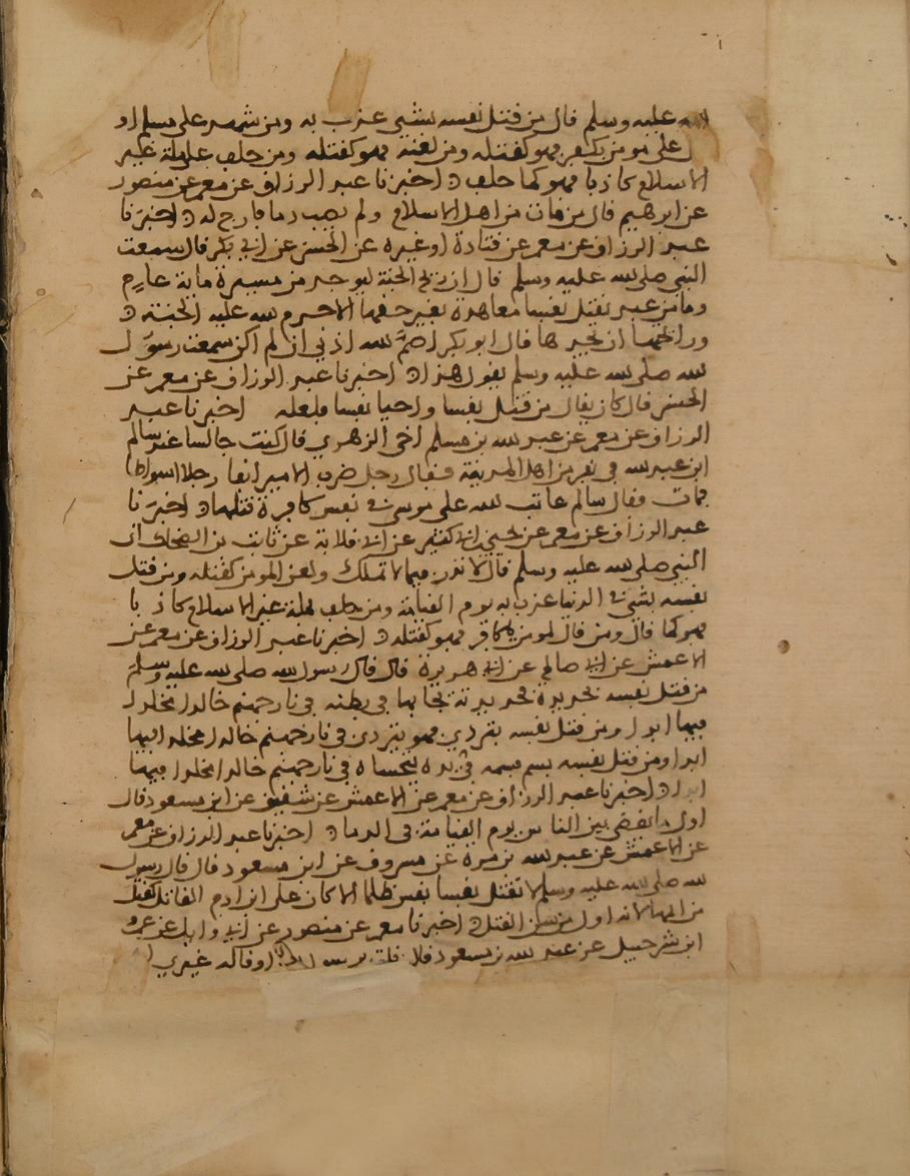 الله عليه وسلم قال من قتل نفسه بشي عذب به ومن شهد على مسلم او
على مومن بكفر فهو كقتله ومن لعنه فهو كقتله ومن حلف على ملة غير
الاسلام كاذبا فهو كما حلف اخبرنا عبد الرزاق عن معمر عن منصور
عن ابرهيم قال من مات من اهل الاسلام ولم يصب دما فارج له اخبرنا
عبد الرزاق عن معمر عن قتادة او غيره عن الحسن عن ابي بكر قال سمعت
النبي صلى الله عليه وسلم قال ان ريح الجنة ليوجد من مسيرة ماية عام
وما من عبد يقتل نفسا معاهدة بغير حقها الا حرم الله عليه الجنة
ورائحتها ان يجدها قال ابو بكر اصم الله اذني ان لم اكن سمعت رسول
الله صلى الله عليه وسلم يقول هذا اخبرنا عبد الرزاق عن معمر عن
الحسن قال كان يقال من قتل نفسا واحيا نفسا فلعله اخبرنا عبد
الرزاق عن معمر عن عبد الله بن مسلم اخي الزهري قال كنت جالسا عند سالم
ابن عبد الله في نفر من اهل المدينة فقال رجل ضرب الامير انفا رجلا اسواطا
فمات فقال سالم عاتب الله على موسى في نفس كافرة قتلها اخبرنا
عبد الرزاق عن معمر عن يحيى بن ابي كثير عن ابي قلابة عن ثابت بن الضحاك ان
النبي صلى الله عليه وسلم قال لا نذر فيما لا تملك ولعن المومن كقتله ومن قتل
نفسه بشي في الدنيا عذب به يوم القيامة ومن حلف بملة غير الاسلام كاذبا
فهو كما قال ومن قال لمومن يا كافر فهو كقتله اخبرنا عبد الرزاق عن معمر عن
الاعمش عن ابي صالح عن ابي هريرة قال قال رسول الله صلى الله عليه وسلم
من قتل نفسه بحديدة فحديدته يجا بها في بطنه في نار جهنم خالدا مخلدا
فيها ابدا ومن قتل نفسه بتردي فهو يتردى في نار جهنم خالدا مخلدا فيها
ابدا ومن قتل نفسه بسم فسمه في يده يتحساه في نار جهنم خالدا مخلدا فيها
ابدا اخبرنا عبد الرزاق عن معمر عن الاعمش عن شقيق عن ابن مسعود قال
اول ما يقضى بين الناس يوم القيامة في الدما اخبرنا عبد الرزاق عن معمر
عن الاعمش عن عبد الله بن مرة عن مسروف عن ابن مسعود قال قال رسول
الله صلى الله عليه وسلم لا تقتل نفسا بنفس ظلما الا كان على ابن ادم القاتل كفل
من اثمها لانه اول من سن القتل اخبرنا معمر عن منصور عن ابي وايل عن عمرو
ابن شرحبيل عن عبد الله بن مسعود او قاله غيري